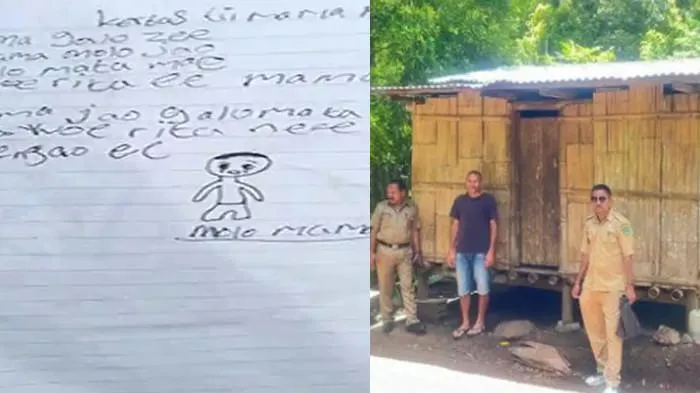 Kertas tii mama
ma galo zee
ama molo Jao
lo mata mae
e rita ee mama
ma Jao galo mata
woe rita nee e
engao ee
molo mama